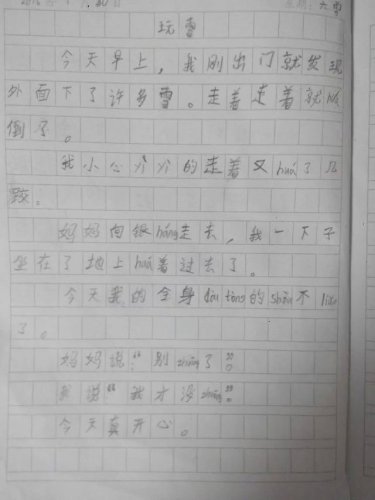 玩雪
今天早上，我刚出门就发现
外面下了许多雪。走着走着就
倒了。
我小心的走着又huá了几
跤。
妈妈向银háng走去，我一下子
坐在了地上huá着过去了。
今天我的全身dōu tòng的shòu不liǎo
了。
妈妈说“别zhuāng了”
我说“我才没zhuāng”
今天真开心。